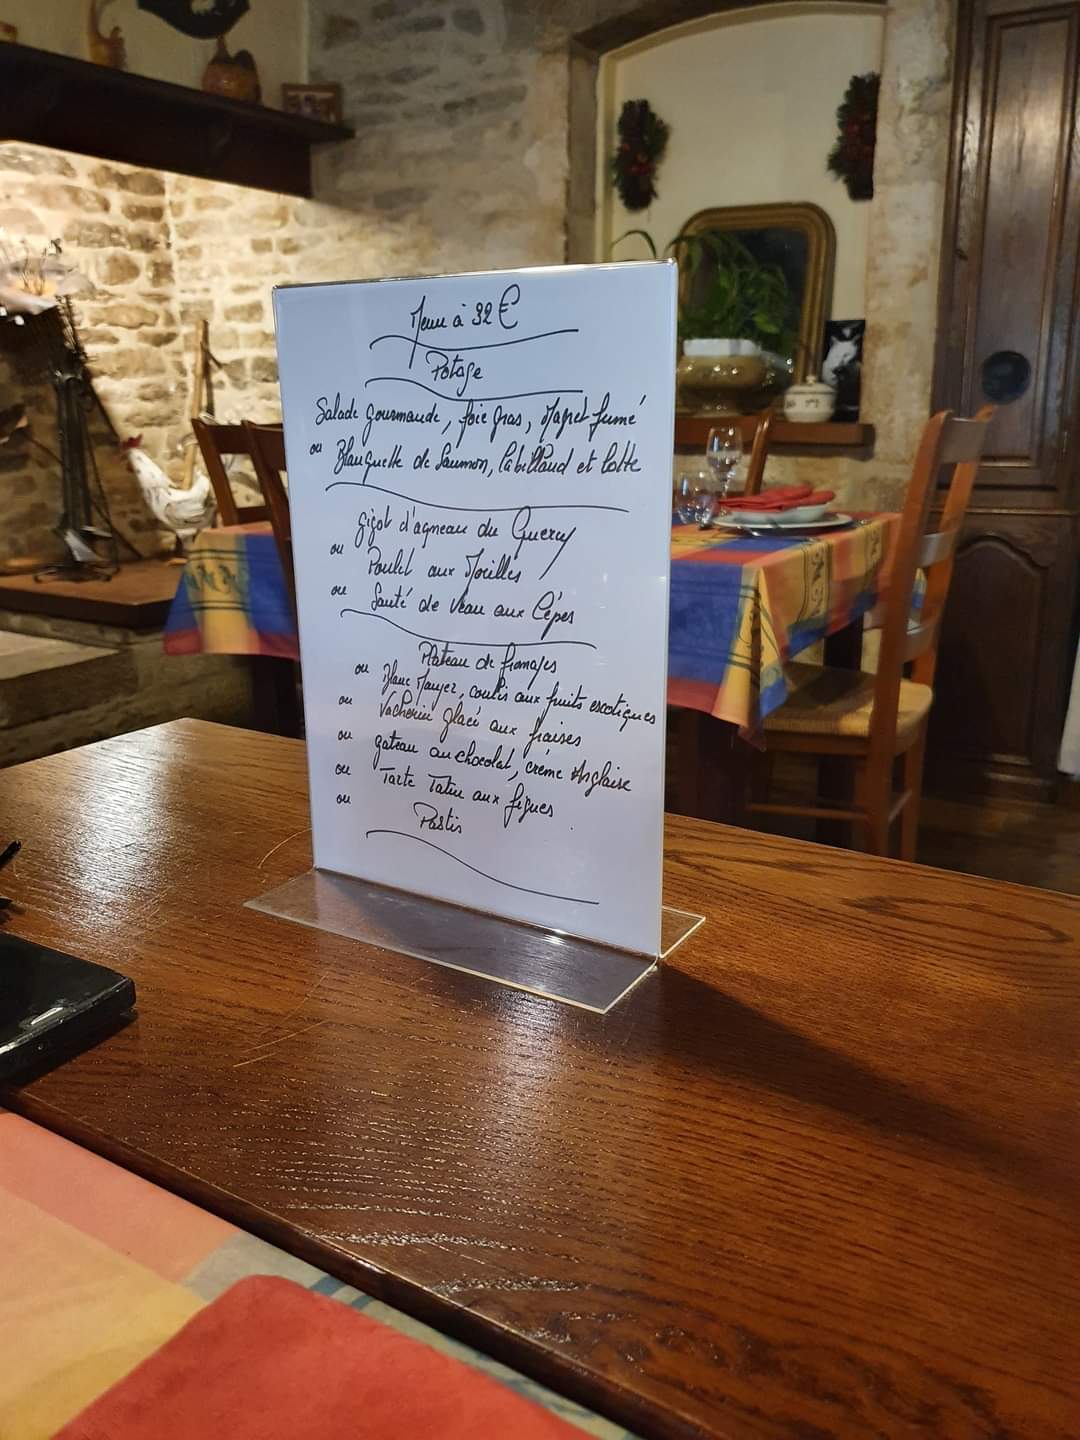 Menu à 32 €
Potage
Salade gourmande, foie gras, Magret fumé
ou Blanquette de Saumon, Cabillaud et Lotte
gigot d'agneau du Quercy
ou Poulet aux Morilles
ou Sauté de Veau aux Cèpes
Plateau de fromages
ou Blanc Manger, coulis aux fruits exotiques
ou Vacherin glacé aux fraises
ou gateau au chocolat, crème Anglaise
ou Tarte Tatin aux figues
ou Pastis